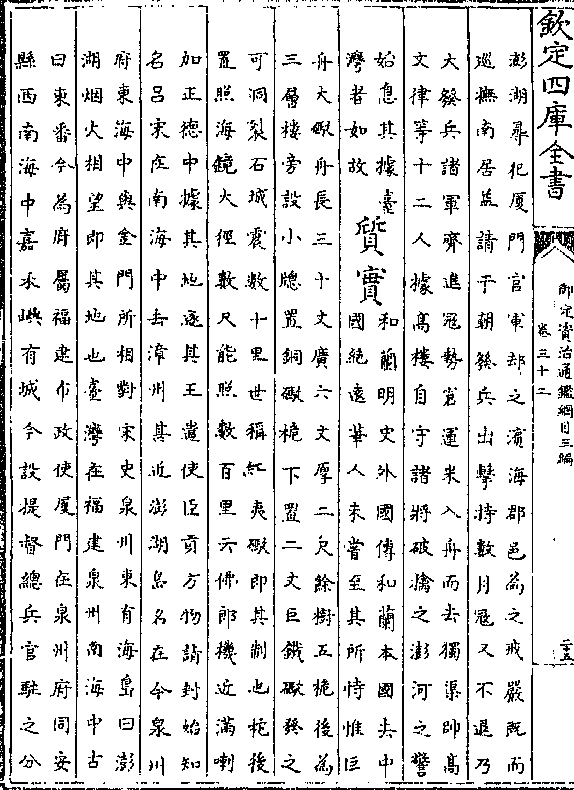 欽定四庫全書
御定資治通鑑綱目三編
卷三十二
二五
澎湖尋犯厦門官軍却之濱海郡邑為之戒嚴既而
巡撫南居益請于朝發兵出擊持數月冦又不退乃
大發兵諸軍齊進冦勢窘運米入舟而去獨渠帥高
文律等十二人據高樓自守諸將破擒之澎河之警
始息其據臺
灣者如故
質實
和蘭明史外國傳和蘭本國去中
國絶遠華人未嘗至其所恃惟巨
舟大礮舟長三十丈廣六丈厚二尺餘樹五桅後為
三層樓旁設小牎置銅礮桅下置二丈巨鐵礮發之
可洞裂石城震數十里世稱紅夷礮即其制也柁後
置照海鏡大徑數尺能照數百里云佛郎機近滿喇
加正德中據其地逐其王遣使臣貢方物請封始知
名吕宋在南海中去漳州甚近澎湖島名在今泉州
府東海中與金門所相對宋史泉州東有海島曰澎
湖烟火相望即其地也臺灣在福建泉州南海中古
曰東番今為府屬福建布政使厦門在泉州府同安
縣西南海中嘉禾嶼有城今設提督總兵官駐之分